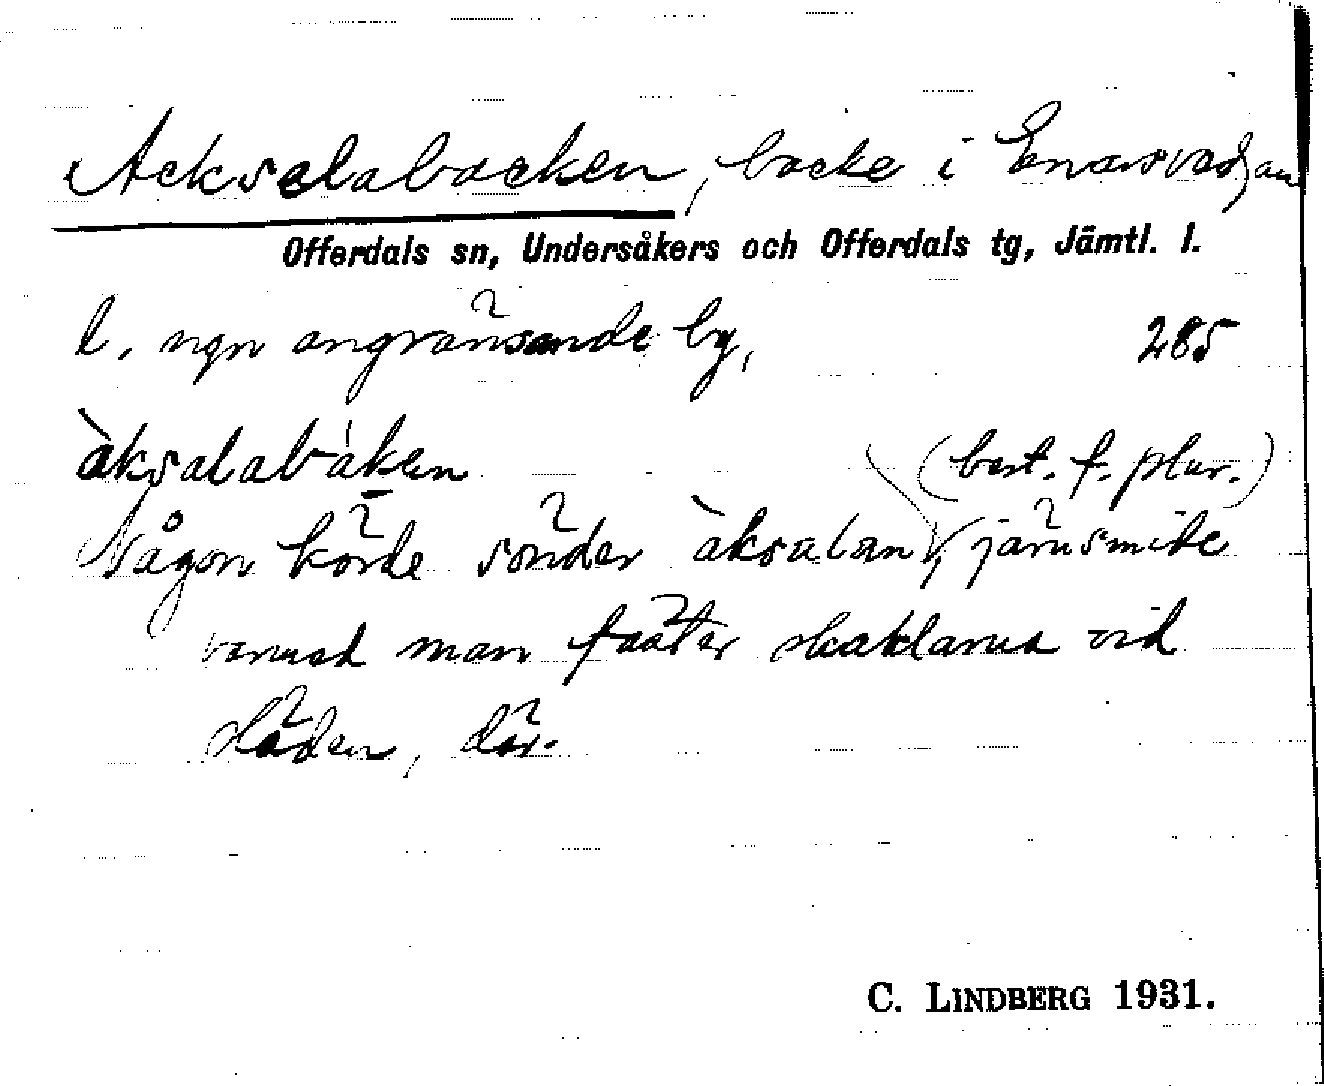 Ackselabacken, backe i Enarsvedjan
Offerdals sn, Undersåkers och Offerdals tg, Jämtl. l.
l. ngn angränsande by, 285
àksalabáken
(best. f. plur.)
Någon körde sönder àksalan, järnsmide
varmed man fäster skaklarna vid
släden, där.
C. LINDBERG 1931.